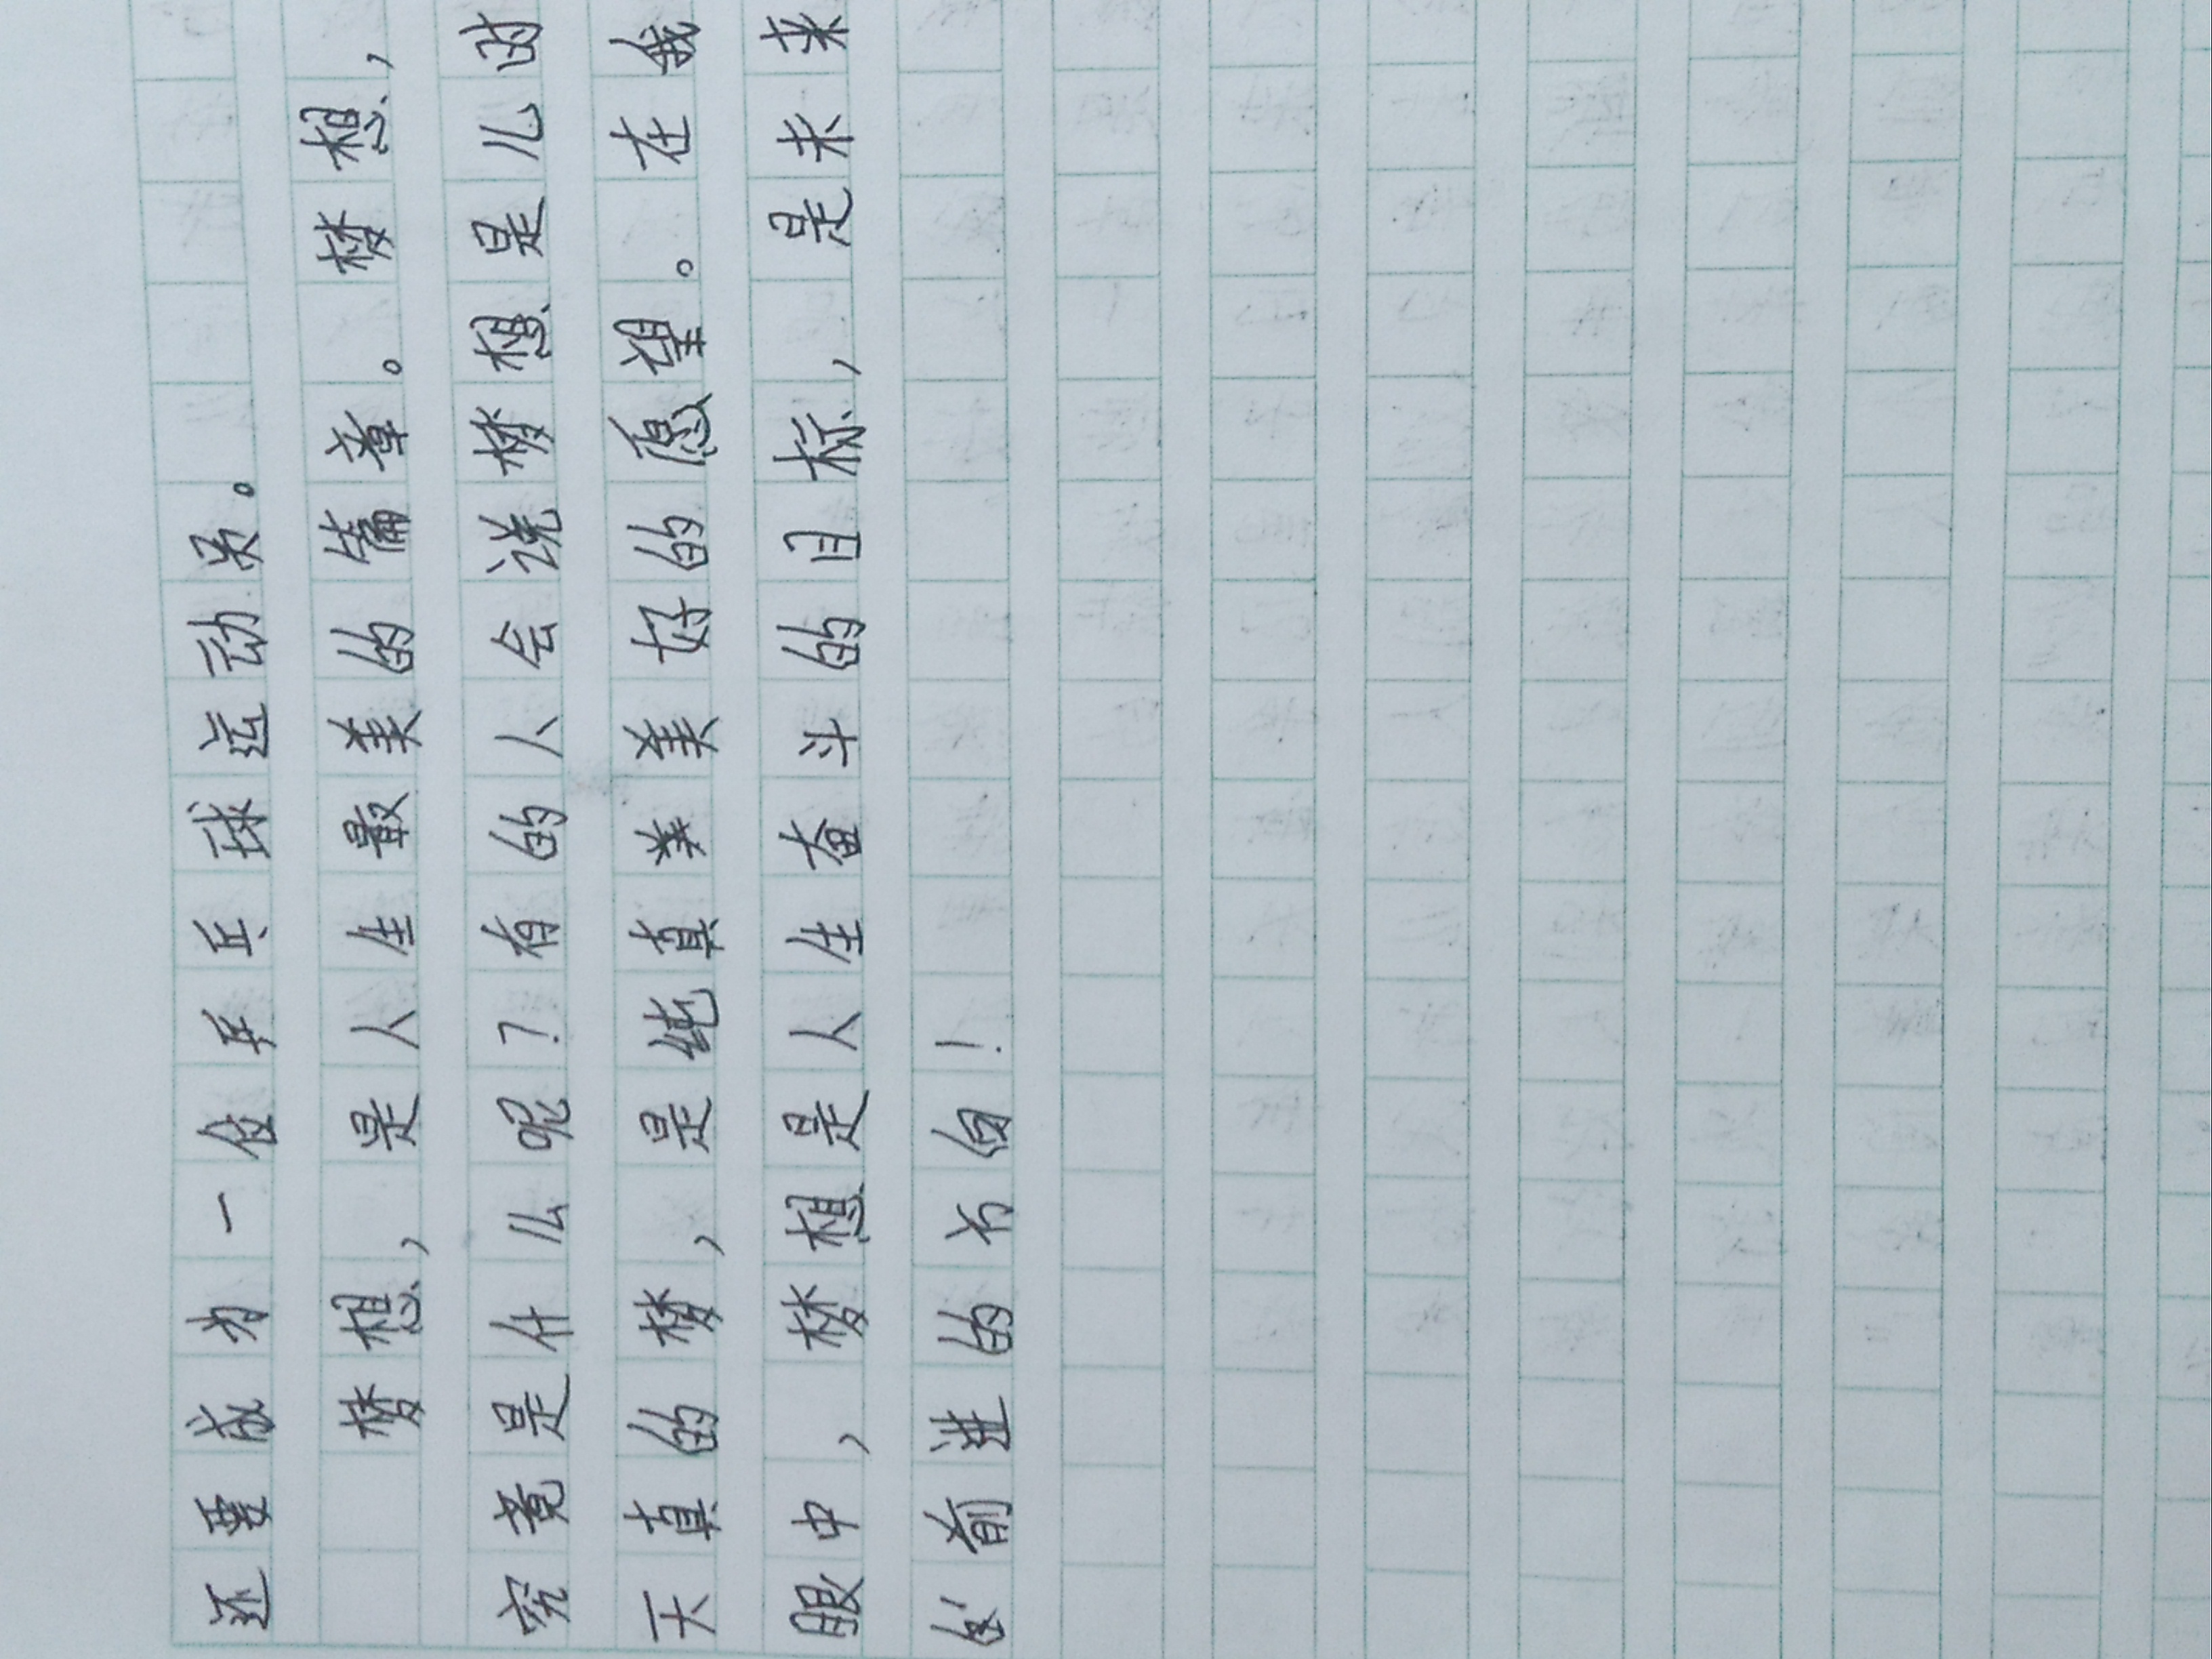 还要成为一位乒乓球运动员。
梦想，是人生最美的篇章。梦想，
究竟是什么呢？有的人会说梦想是儿时
天真的梦，是纯真美好的愿望。在我
眼中，梦想是人生奋斗的目标，是未来
前进的方向！